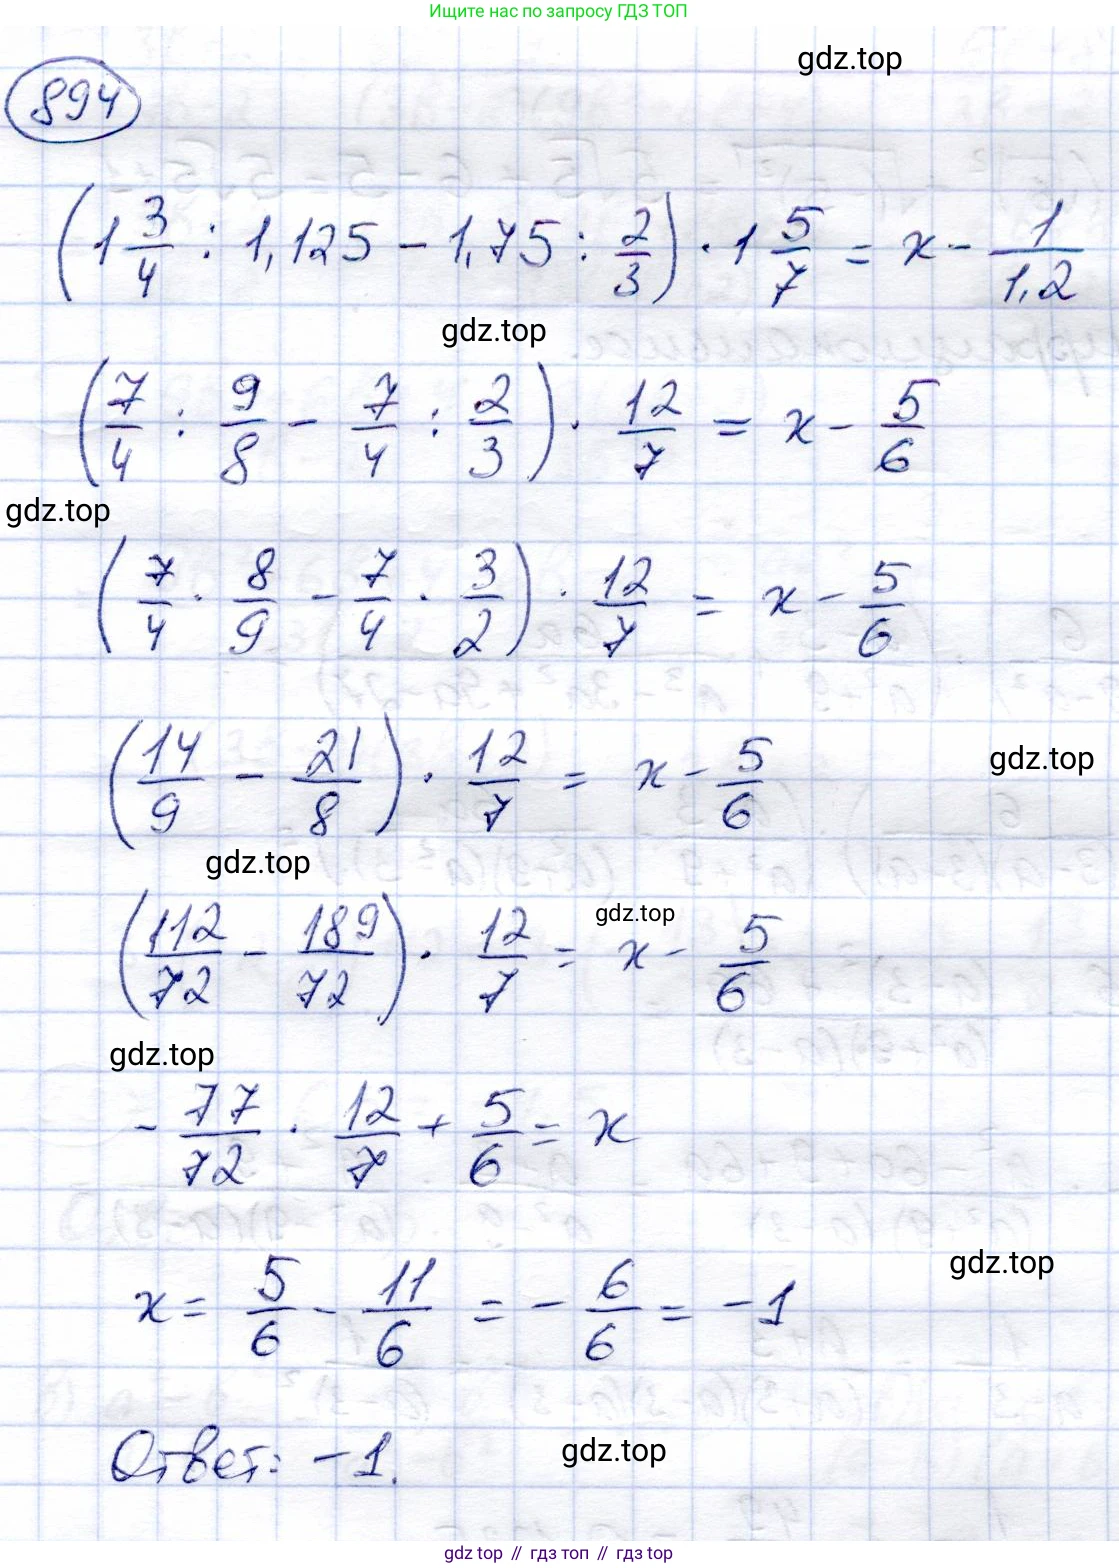 Ищите нас по запросу ГДЗ ТОП
gdz.top
894
(1 3/4 : 1,125 - 1,75 : 2/3) · 1 5/7 = x - 1/1,2
gdz.top
(7/4 : 9/8 - 7/4 : 2/3) · 12/7 = x - 5/6
gdz.top
(7/4 · 8/9 - 7/4 · 3/2) · 12/7 = x - 5/6
(14/9 - 21/8) · 12/7 = x - 5/6
gdz.top
gdz.top
(112/72 - 189/72) · 12/7 = x - 5/6
gdz.top
gdz.top
- 77/72 · 12/7 + 5/6 = x
x = 5/6 - 11/6 = - 6/6 = -1
gdz.top
Ответ: -1.
gdz.top
gdz top // гдз топ // gdz top